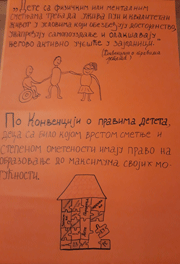 „Дете са физичким или менталним
сметњама треба да ужива пун и квалитетан
живот у условима који обезбеђују достојанство,
унапређују самопоуздање и олакшавају
његово активно учешће у заједници."
По Конвенцији о правима детета,
деца са било којом врстом сметње и
степеном ометености имају право на
образовање до максимума својих мо-
гућности.